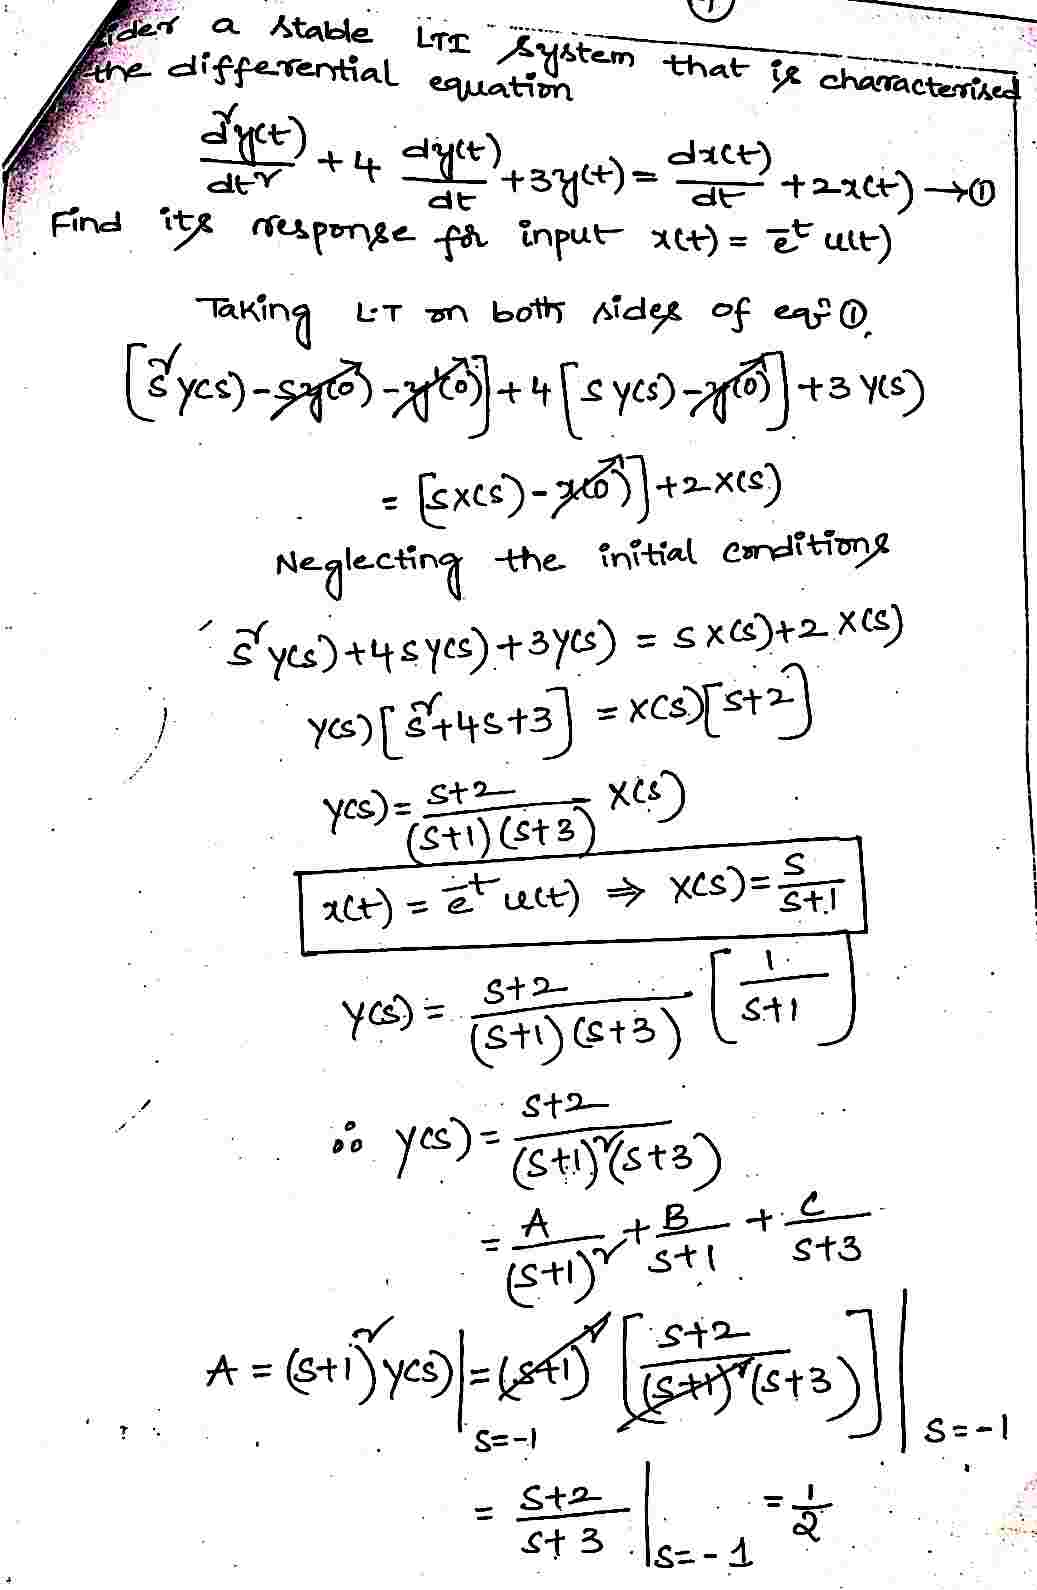 ider a stable LTI system that is characterised
the differential equation
d²y(t)/dt² + 4 dy(t)/dt + 3y(t) = dx(t)/dt + 2x(t) → ①
Find its response for input x(t) = e^-t u(t)
Taking L.T on both sides of eqn ①
[s²Y(s) - sy(0) - y'(0)] + 4[sY(s) - y(0)] + 3Y(s)
= [sX(s) - x(0)] + 2X(s)
Neglecting the initial conditions
s²Y(s) + 4sY(s) + 3Y(s) = sX(s) + 2X(s)
Y(s)[s² + 4s + 3] = X(s)[s+2]
Y(s) = s+2/(s+1)(s+3) X(s)
x(t) = e^-t u(t) ⇒ X(s) = s/s+1
Y(s) = s+2/(s+1)(s+3) [1/s+1]
∴ Y(s) = s+2/(s+1)²(s+3)
= A/(s+1)² + B/s+1 + C/s+3
A = (s+1)² Y(s)|s=-1 = (s+1)² [s+2/(s+1)²(s+3)]|s=-1
= s+2/s+3 |s=-1 = 1/2